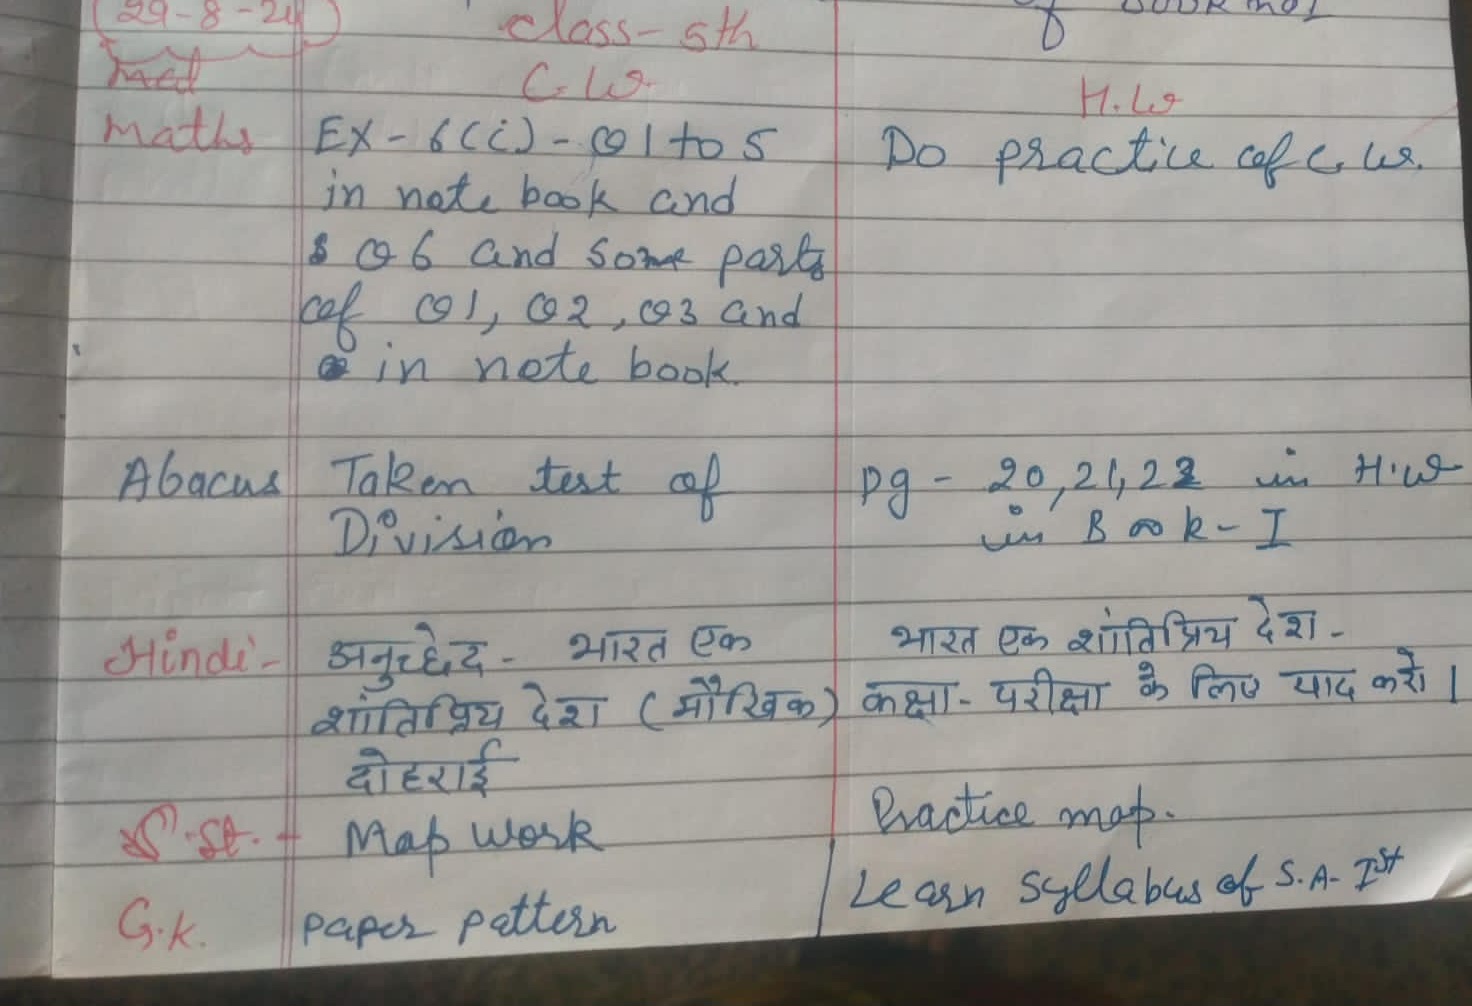 (29-8-24)
class-5th
of book
C.W
H.W
Maths
EX-6(i)-Q1 to 5
Do practice of C.W.
in note book and
Q6 and some parts
of Q1, Q2, Q3 and
in note book.
Abacus Taken test of
pg - 20, 21, 22 in H.W
Division
in Book-I
Hindi- अनुच्छेद- भारत एक
भारत एक शांतिप्रिय देश-
शांतिप्रिय देश (मौखिक)
कक्षा-परीक्षा के लिए याद करो।
दोहराई
S.St. - Map work
Practice map.
G.K. paper pattern
Learn syllabus of S.A-Ist